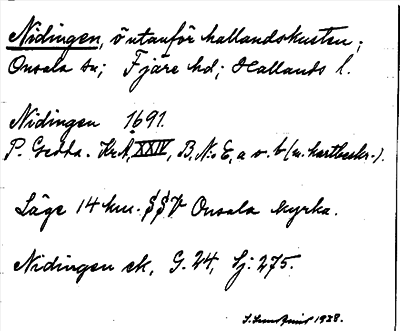 Nidingen, ö utanför hallandskusten;
Onsala sn; Fjäre hd; Hallands l.
Nidingen 1691.
P. Gedda. KrA, XXIV, B, N:o E, a o. b (m. kartbeskr.).
Läge 14 km. SSV Onsala kyrka.
Nidingen ek, G. 24, Sj. 275.
1938.